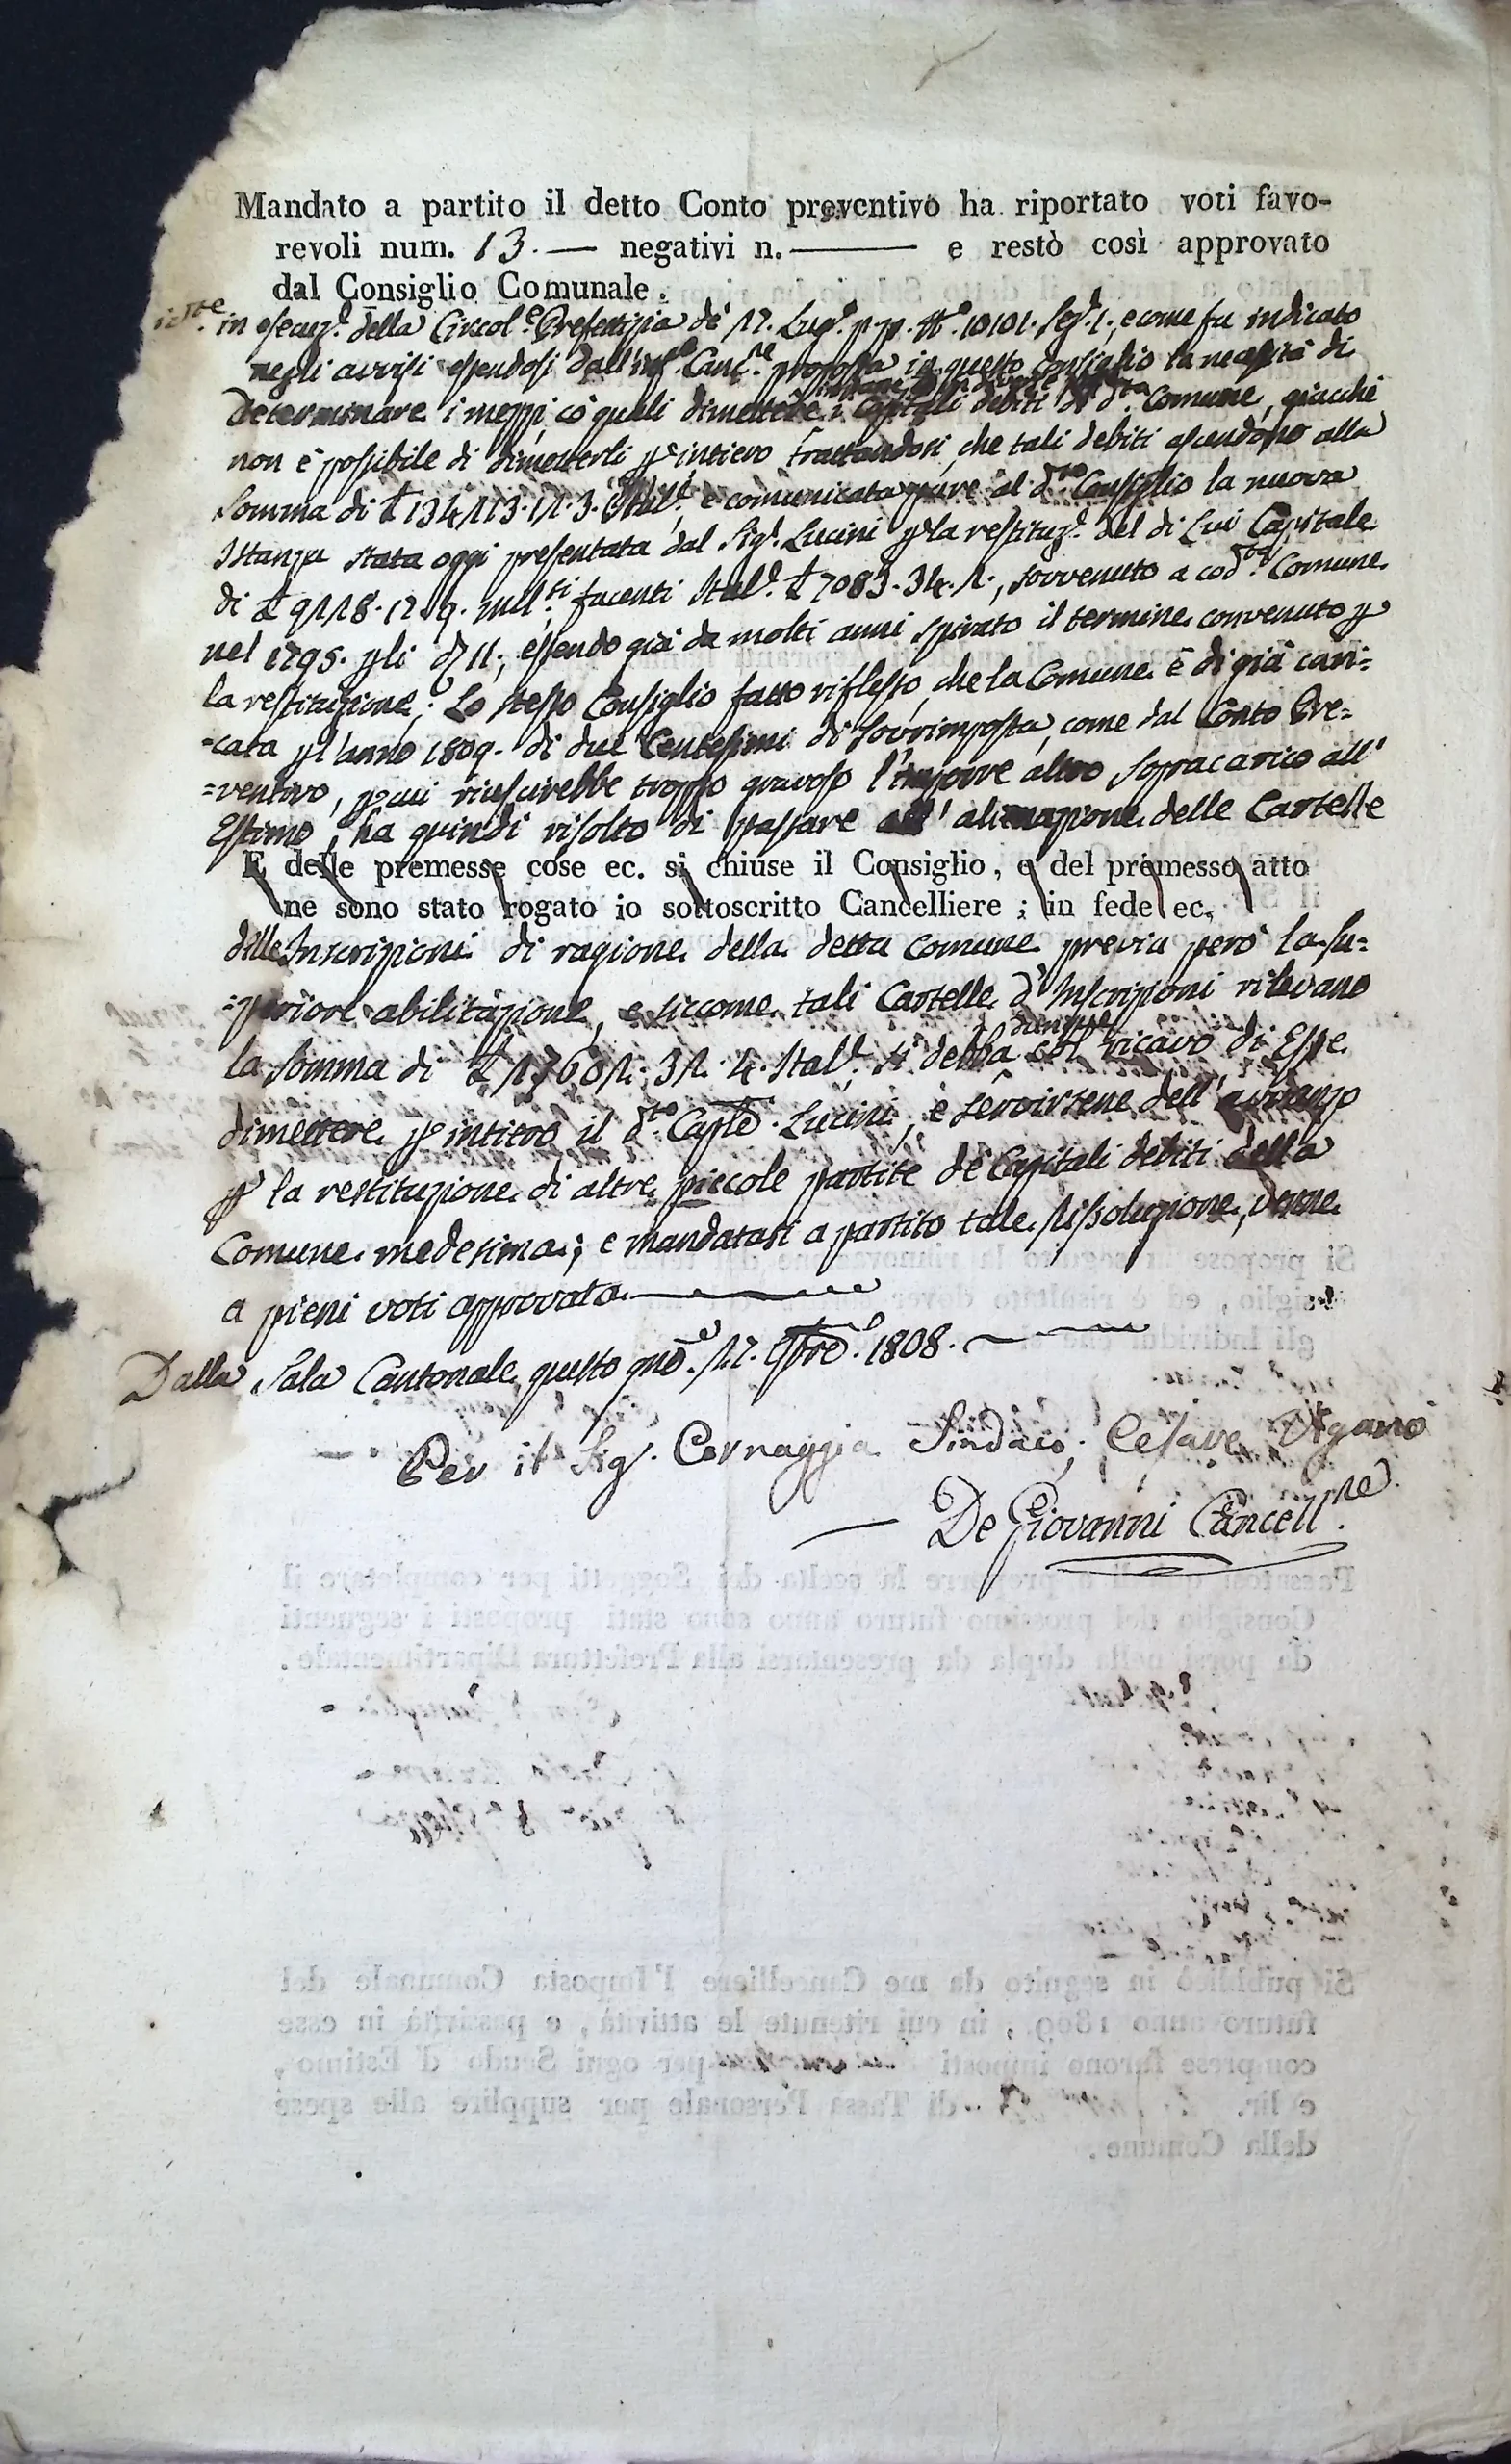 Mandato a partito il detto Conto preventivo ha riportato voti favo-
revoli num. 13. — negativi n. ——— e restò così approvato
dal Consiglio Comunale.
in esecuz.e della Circol.e Prefettizia de' 17. Lug.o p.p. N.o 10101. Sez. 1., e come fu indicato
negli avvisi essendosi dall'inf.o Canc.re proposta in questo Consiglio la necessità di
determinare i mezzi, co' quali dimettere i Capitali debiti di d.ta Comune, giacchè
non è possibile di dimetterli p intiero trattandosi, che tali debiti ascendono alla
Somma di Ital.e, e comunicata pure al d.to Consiglio la nuova
Istanza stata oggi presentata dal Sig.r Lucini p la restituz.e del di Lui Capitale
di mil.si facenti Ital.e £ 7083. 34. , sovvenuto a cod.ta Comune
nel 1795. essendo già da molti anni spirato il termine convenuto p
la restituzione; Lo stesso Consiglio fatto riflesso, che la Comune è di già cari=
=cata p l'anno 1809. di due Centesimi di Sovrimposta, come dal Conto Pre=
=ventivo, p cui riuscirebbe troppo gravoso l'imporre altro sopracarico all'
Estimo, ha quindi risolto di passare all' alienazione delle Cartelle
E delle premesse cose ec. si chiuse il Consiglio, e del premesso atto
ne sono stato rogato io sottoscritto Cancelliere; in fede ec.
delle Inscrizioni di ragione della detta Comune previa però la su=
=periore abilitazione, e siccome tali Cartelle d'Inscrizioni rilevano
la somma di Ital.e si debba dunque col ricavo di Esse
dimettere p intiero il d.to Caple. Lucini, e servirsene dell'avvanzo
p la restituzione di altre piccole partite de' Capitali debiti della
Comune medesima; e mandatasi a partito tale risoluzione, venne
a pieni voti approvata.
Dalla Sala Cantonale questo gno. 17. 1808.
Per il Sig.r Cornaggia Sindaco; Cesare Viganò
— De Giovanni Cancell.re